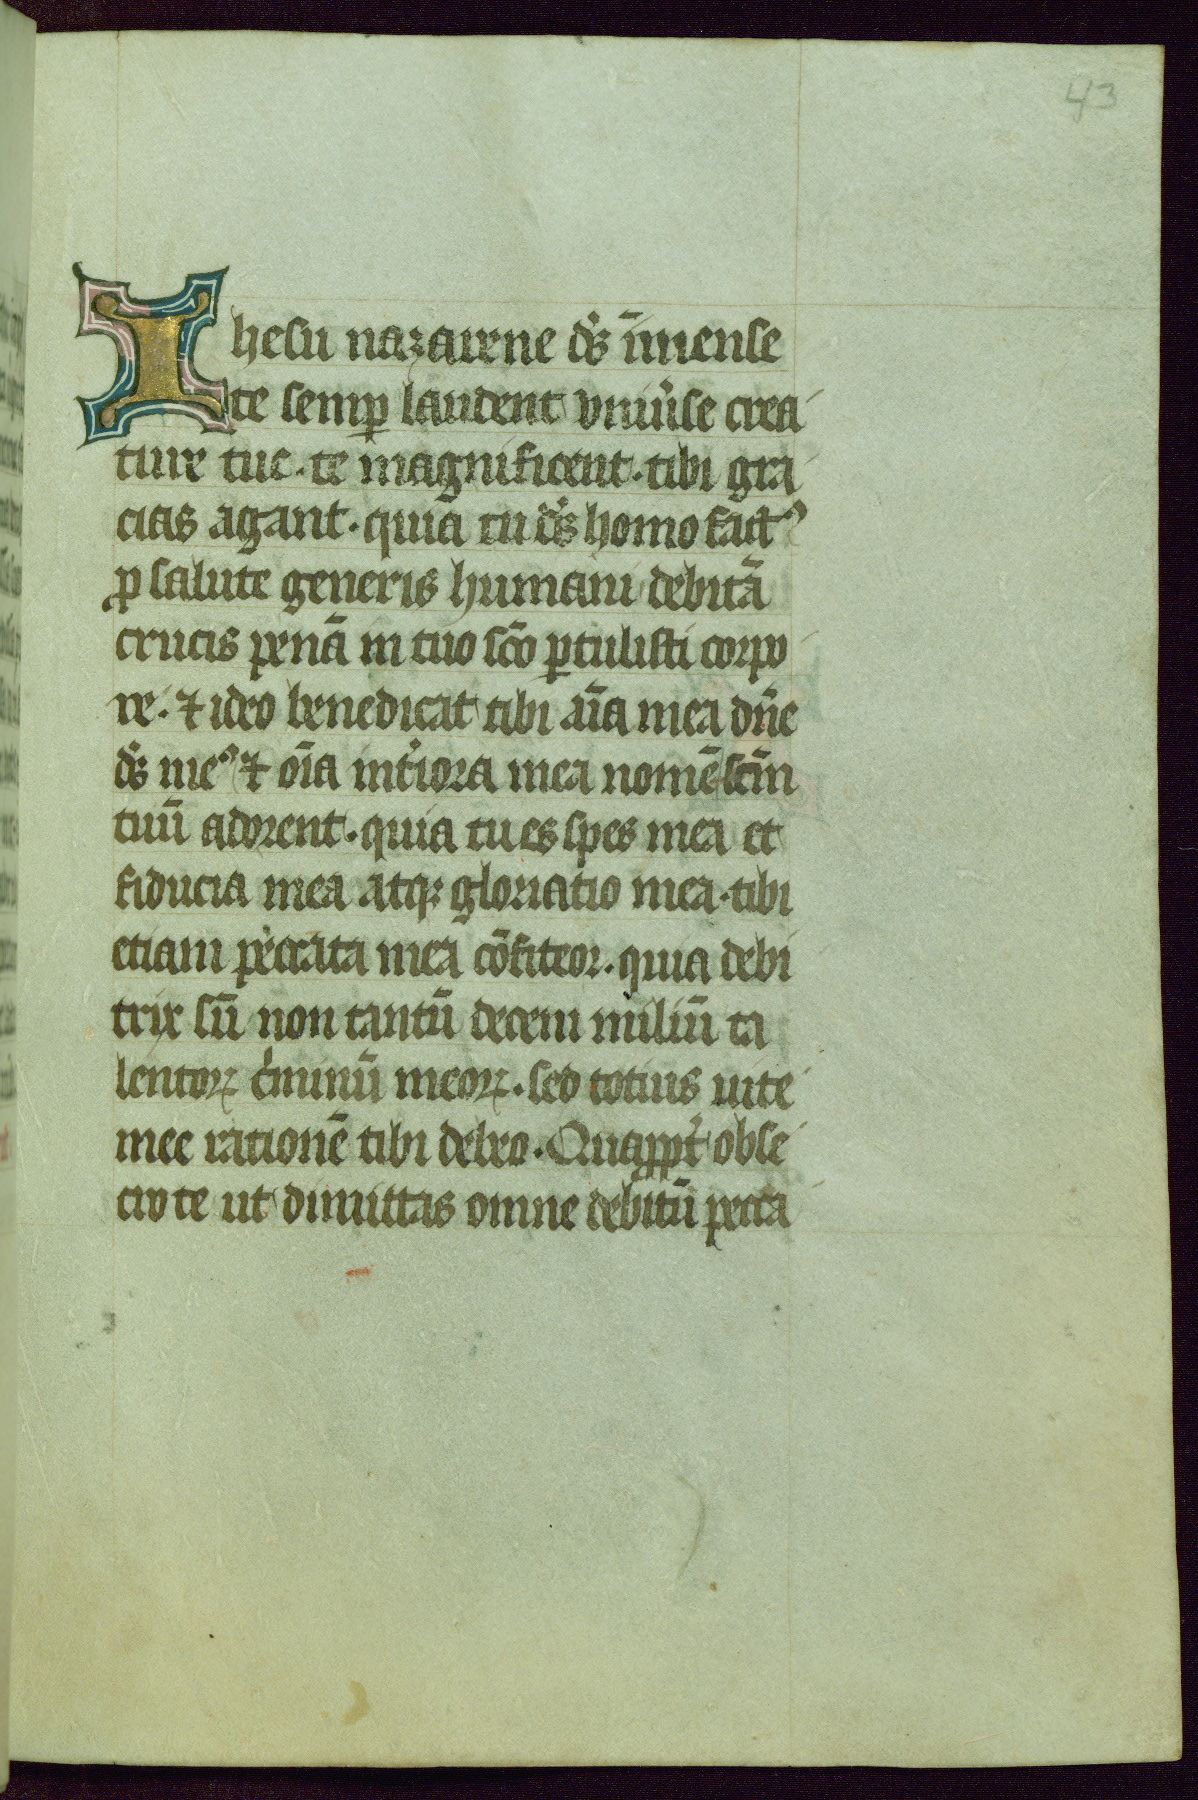 43
Ihesu nazarene ds̄ īmense
te semꝑ laudent vniu̾se crea
ture tue · te magnificent · tibi gra
cias agant · quia tu ds̄ homo factꝰ
ꝓ salute generis humani debitā
crucis penā in tuo sc̄o ꝑtulisti corpo
re · ⁊ ideo benedicat tibi aīa mea dn̄e
ds̄ meꝰ ⁊ oīa int̾iora mea nomē sc̄m
tuū adorent · quia tu es spes mea et
fiducia mea atqꝫ gloriatio mea · tibi
etiam peccata mea cōfiteor · quia debi
trix sū non tantū decem miliū ta
lentoꝝ c̾minū meoꝝ · sed totius uite
mee rationē tibi debeo · Quaꝓpt̾ obse
cro te ut dimittas omne debitū pecca